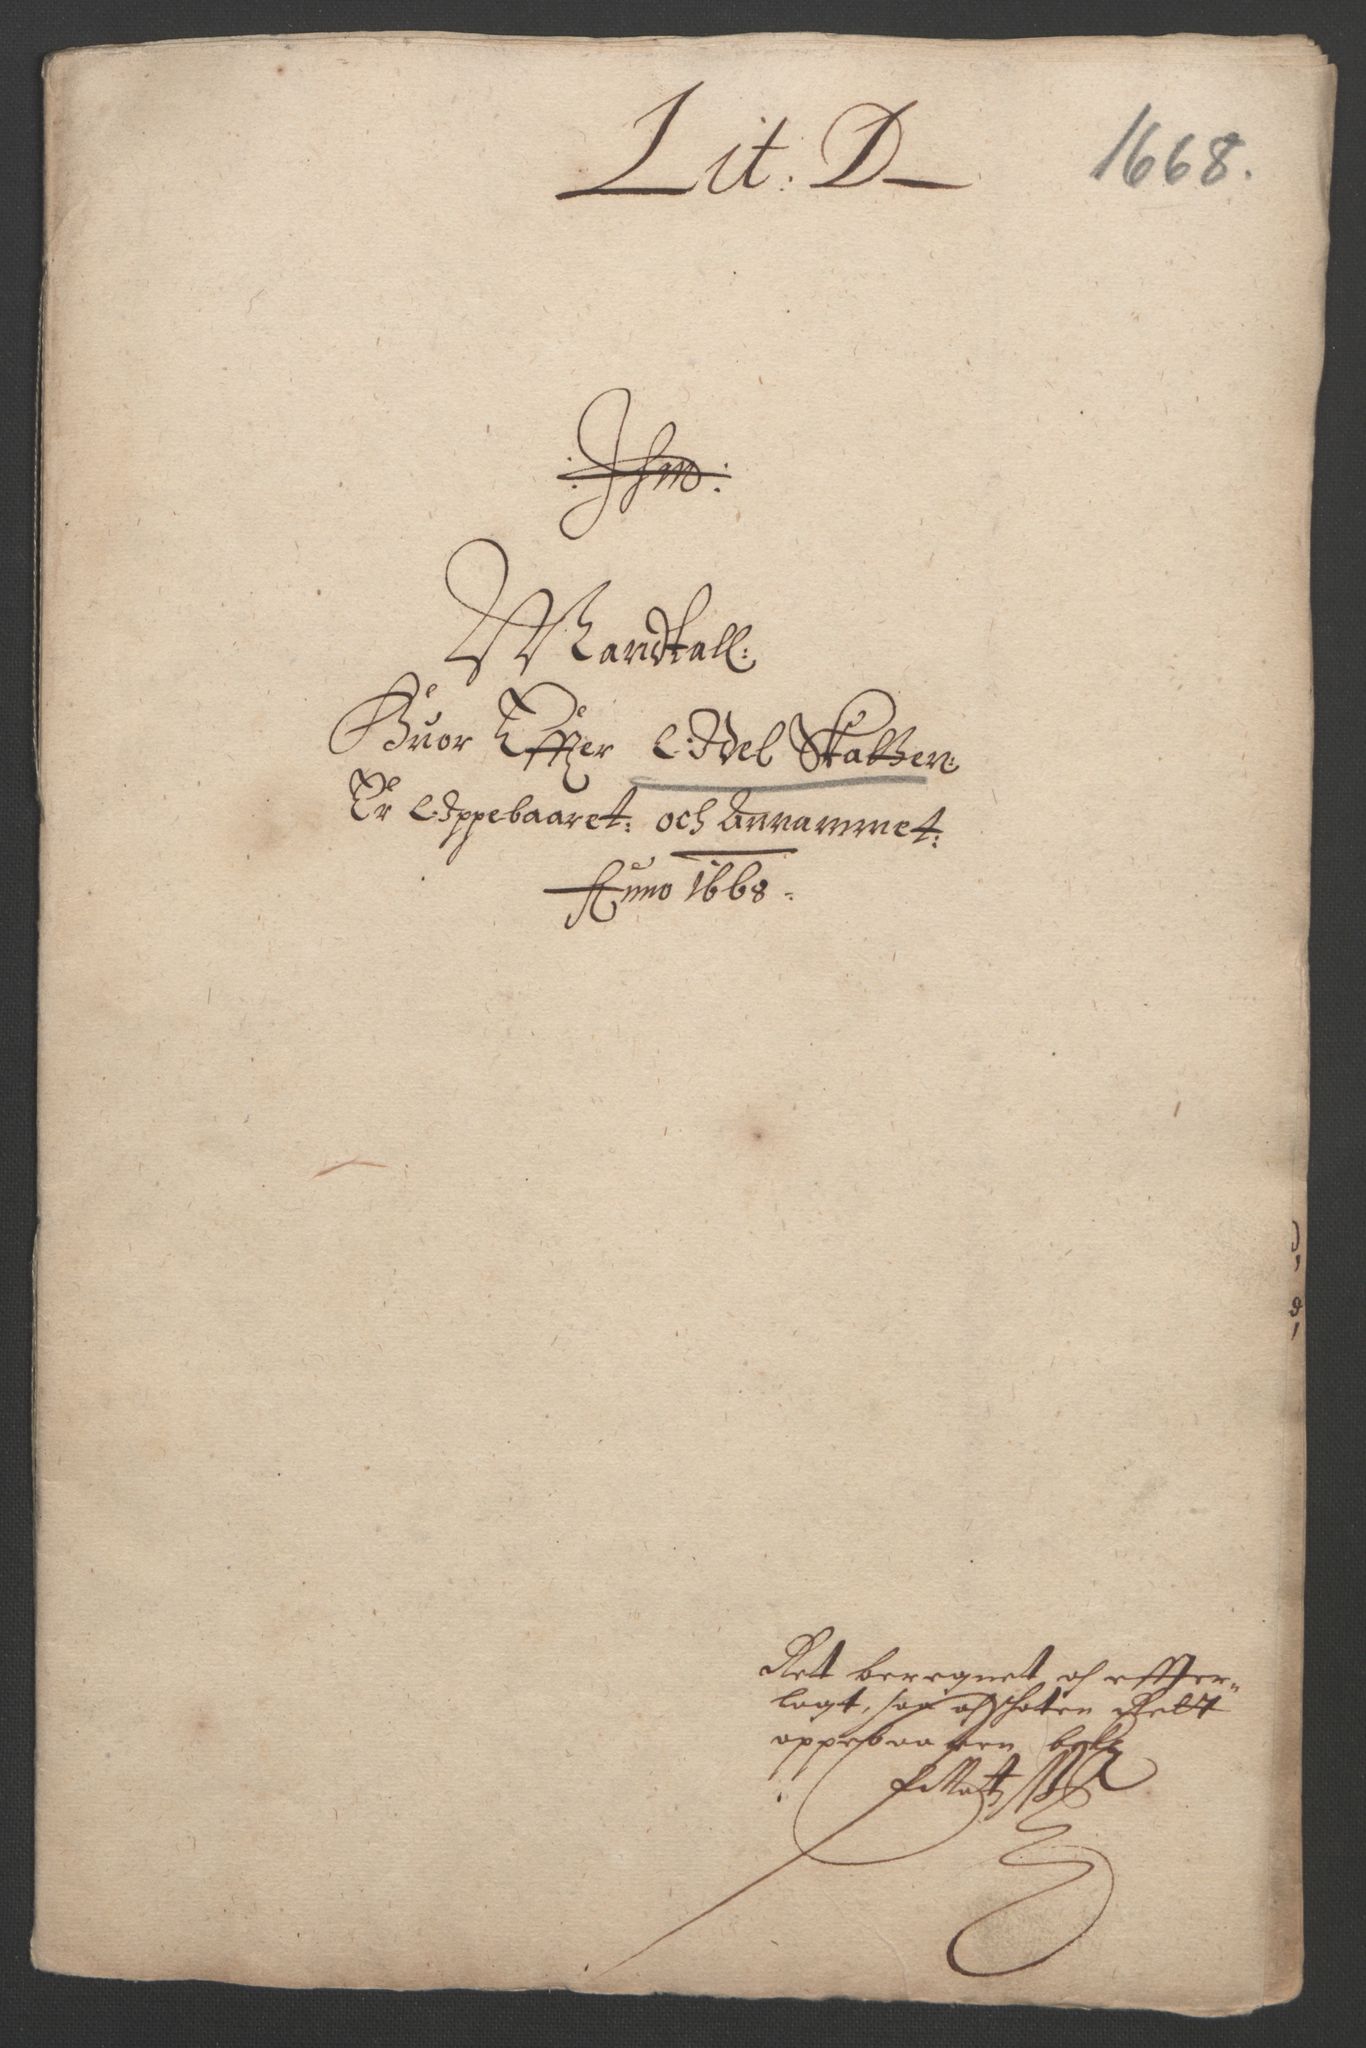 Lit: D
1668.
:Ihm:
Mandtall:
Huor Effter Odel Skatten:
Er Oppebaaret: och Annammet:
Anno 1668.
Ret beregnet, och effter=
lagt, saa
oppebaaren